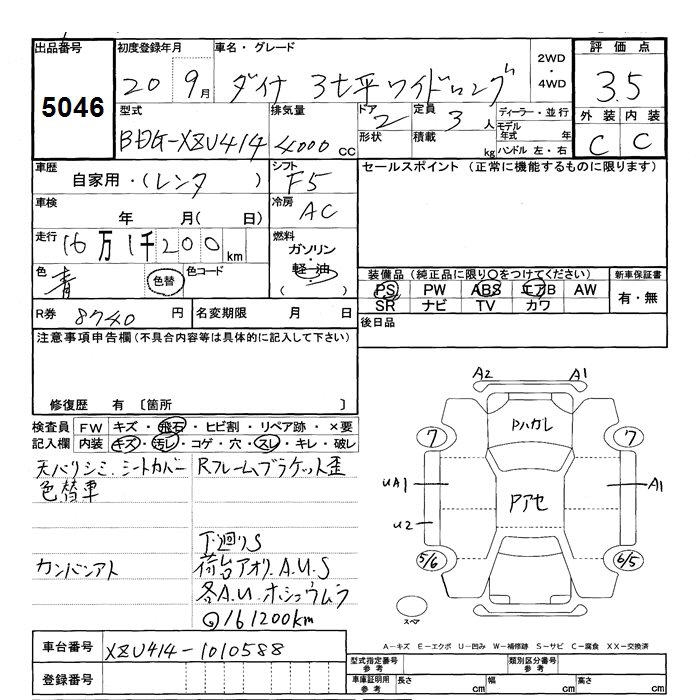 出品番号
5046
初度登録年月
20 9月
車名・グレード
ダイナ 3t平ワイドロング
2WD
・
4WD
評価点
3.5
外装 内装
C C
型式
BDG-XZU414
排気量
4000cc
ドア
2
定員
3人
ディーラー・並行
モデル
年式 年
形状
積載 kg
ハンドル 左・右
車歴
自家用・(レンタ )
シフト
F5
セールスポイント (正常に機能するものに限ります)
車検
年 月( 日)
冷房
AC
走行
16万1千200km
燃料
ガソリン
・
軽・油
( )
色
青
色替
色コード
装備品 (純正品に限り○をつけてください)
PS PW ABS エアB AW
SR ナビ TV カワ
新車保証書
有・無
R券 8740円
名変期限 月 日
後日品
注意事項申告欄 (不具合内容等は具体的に記入して下さい)
修復歴 有 〔箇所 〕
検査員
記入欄
FW キズ・飛石・ヒビ割・リペア跡・×要
内装 キズ・汚レ・コゲ・穴・スレ・キレ・破レ
天バリシミ.シートカバー
色替車
カンバンアト
Rフレームブラケット歪
下廻りS
荷台アオリ.A.U.S
各A.U ホシュウムラ
◎161200km
A2 A1
Pハガレ
7 7
UA1 Pアセ A1
U2
5/6 6/5
スペア
A-キズ E-エクボ U-凹み W-補修跡 S-サビ C-腐食 XX-交換済
車台番号 XZU414-1010588
登録番号
型式指定番号
参考
類別区分番号
参考
車庫証明用
参考
長さ cm 幅 cm 高さ cm